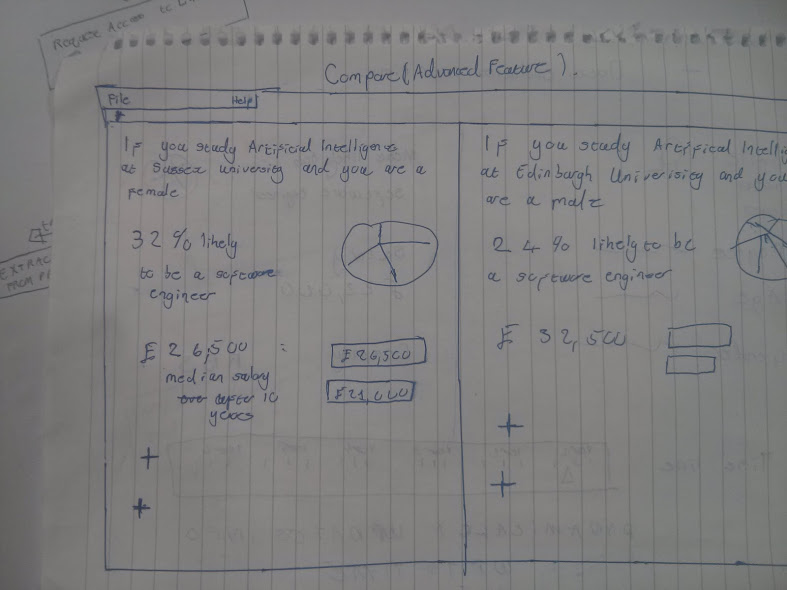 Require Access to
Compare (Advanced Feature).
File
Help
If you study Artificial Intelligence
at Sussex University and you are a
female
32% likely
to be a software
engineer
£26,500 :
median salary
after 10
years
£26,500
£21,000
If you study Artifical Intellig
at Edinburgh Univerisity and you
are a male
24% likely to be
a software engineer
£ 32,500
EXTRAC
FROM